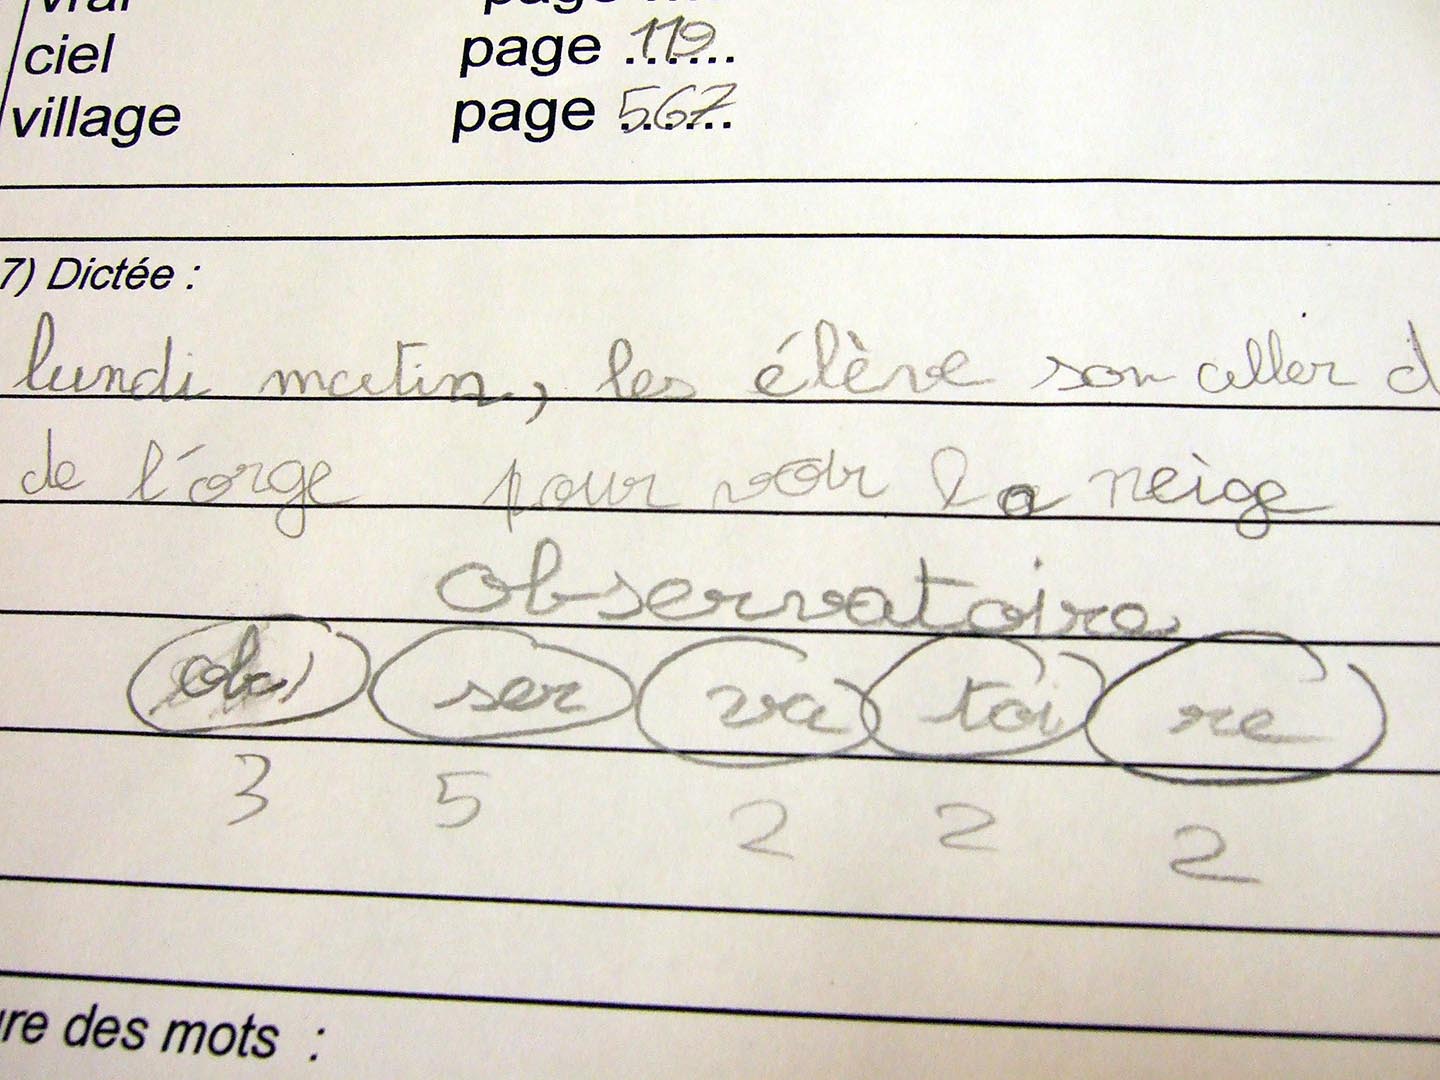 vrai page
ciel page 119
village page 567
7) Dictée :
lundi matin, les élève son aller d
de l'orge pour voir la neige
observatoire
ob ser va toi re
3 5 2 2 2
ure des mots :